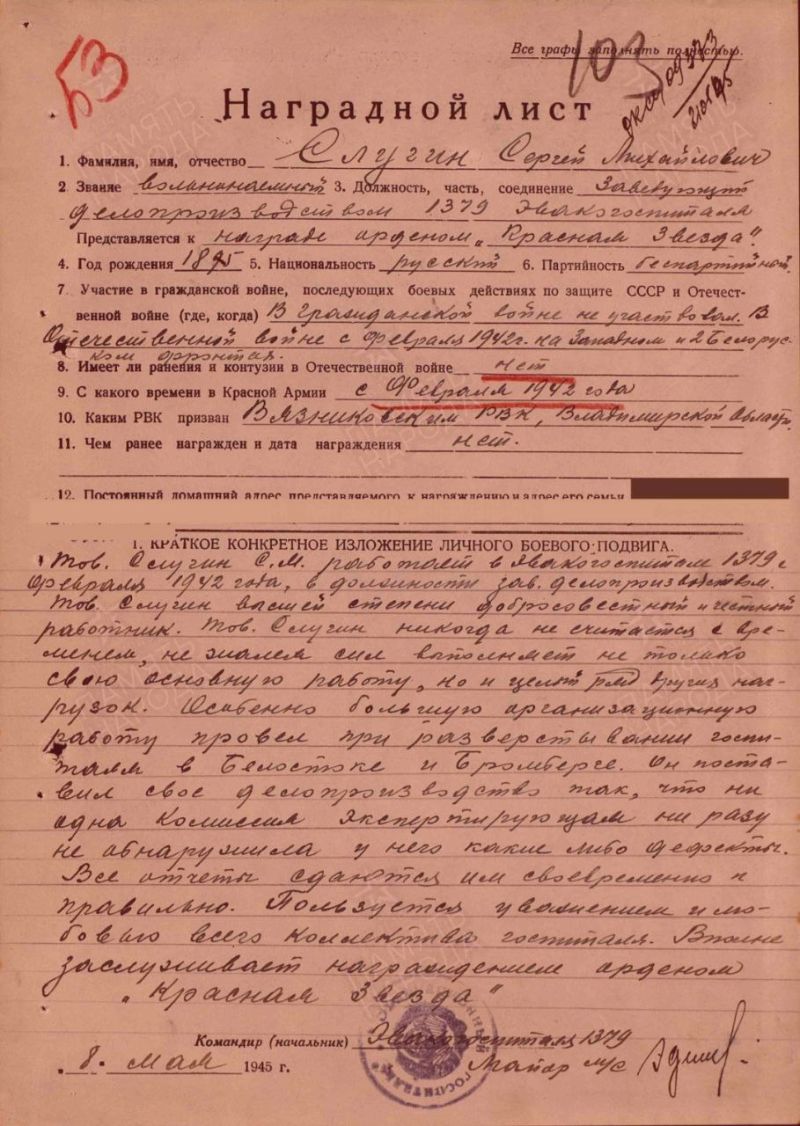 53
Все графы заполнять полностью.
103
Наградной лист
1. Фамилия, имя, отчество Слугин Сергей Михайлович
2 Звание вольнонаемный 3. Должность, часть, соединение Заведующий
делопроизводством 1379 Эвакогоспиталя
Представляется к награде орденом „Красная Звезда".
4. Год рождения 1895 5. Национальность русский 6. Партийность беспартийный
7. Участие в гражданской войне, последующих боевых действиях по защите СССР и Отечест-
венной войне (где, когда) В Гражданской войне не участвовал. В
Отечественной войне с февраля 1942г. на Западном и 2 Белорус-
ском фронтах.
8. Имеет ли ранения и контузии в Отечественной войне нет
9. С какого времени в Красной Армии с Февраля 1942 года
10. Каким РВК призван Вязниковским РВК, Владимирской Области
11. Чем ранее награжден и дата награждения нет.
12. Постоянный домашний адрес представляемого к награждению и адрес его семьи
1. КРАТКОЕ КОНКРЕТНОЕ ИЗЛОЖЕНИЕ ЛИЧНОГО БОЕВОГО ПОДВИГА.
Тов. Слугин С.М. работает в Эвакогоспитале 1379 с
Февраля 1942 года, в должности зав. делопроизводством.
Тов. Слугин высшей степени добросовестный и честный
работник. Тов. Слугин никогда не считается с вре-
менем, не жалея сил выполняет не только
свою основную работу, но и целый ряд других наг-
рузок. Особенно большую организационную
работу провел при развертывании госпи-
таля в Белостоке и Бромберге. Он поста-
вил свое делопроизводство так, что ни
одна Комиссия экспертирующая ни разу
не обнаружила у него какие либо дефекты.
Все отчеты сдаются им своевременно и
правильно. Пользуется уважением и лю-
бовью всего коллектива госпиталя. Вполне
заслуживает награждением орденом
„Красная Звезда"
Командир (начальник) Эвакогоспиталя 1379
8. мая 1945 г. Майор м/с